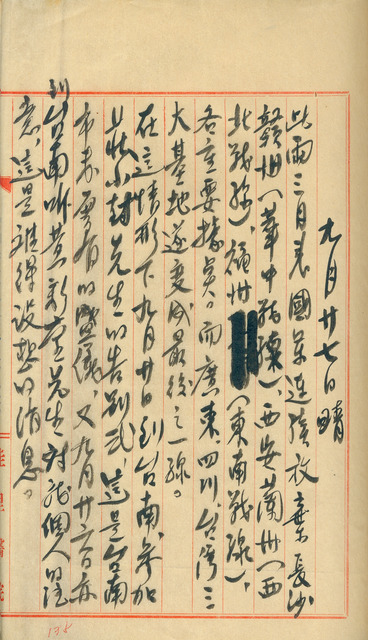 九月廿七日 晴
此兩三月來國軍連續放棄長沙
贛州(華中戰線)、西安蘭州(西
北戰線)、福州(東南戰線)、
各主要據點。而廣東、四川、台灣三
大基地遂變成最後之一線。
在這情形下九月廿日到台南參加
先生的告別式 這是台南
市未曾有的盛儀,又九月廿六日亦
到台南听黃先生對我個人的
意,這是難得設想的消息。
138